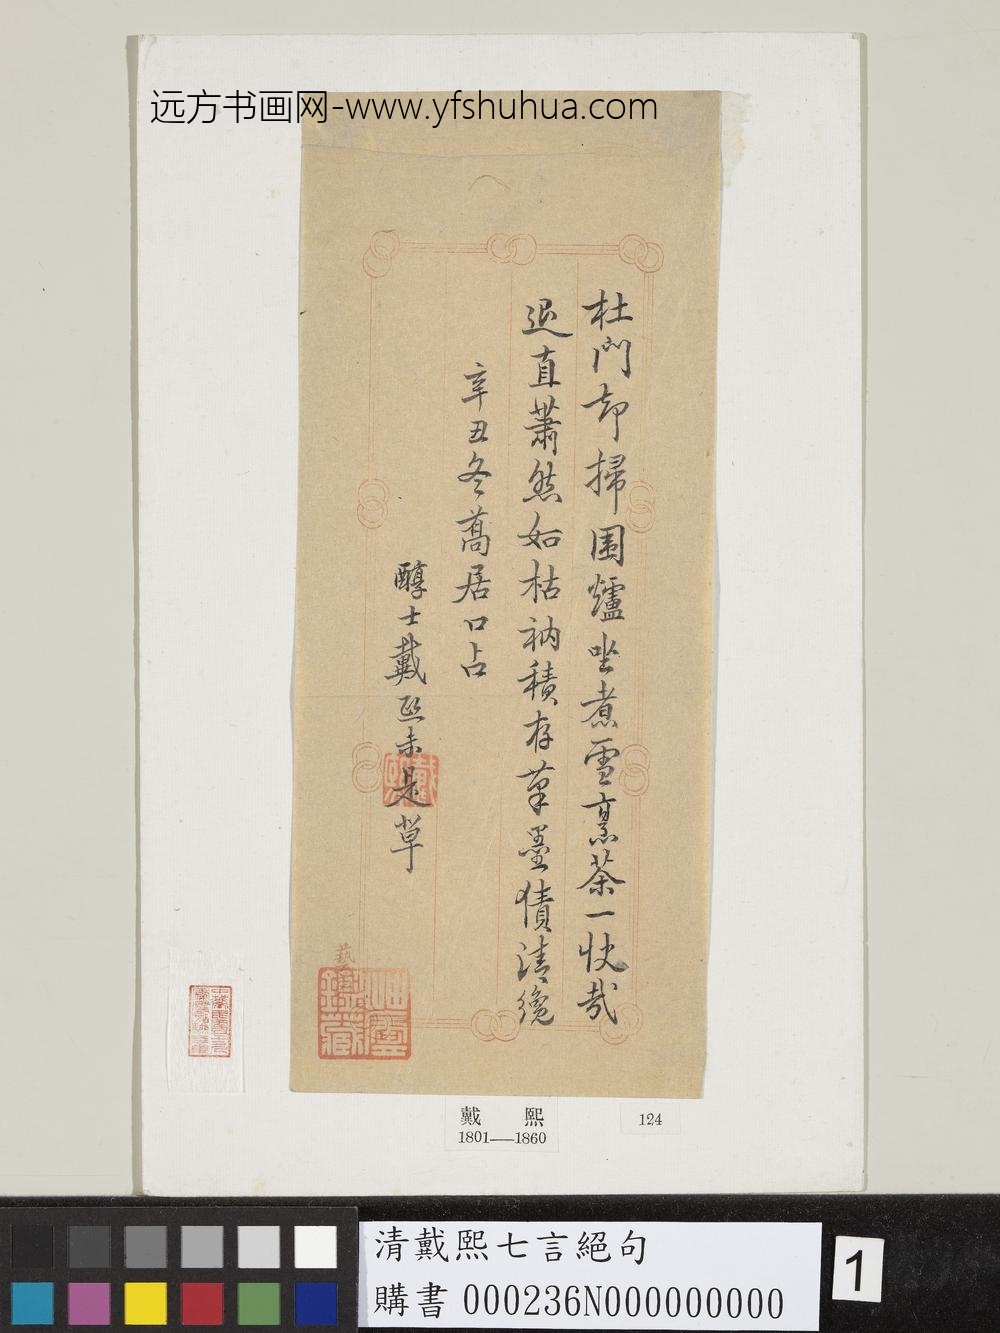 远方书画网-www.yfshuhua.com
杜門却掃围爐坐煮雪烹茶一快哉
退直蕭然如枯衲積存筆墨債清纔
辛丑冬蒿居口占
醇士戴熙未是草
戴熙
1801—1860
124
清戴熙七言絕句
購書 000236N000000000
1